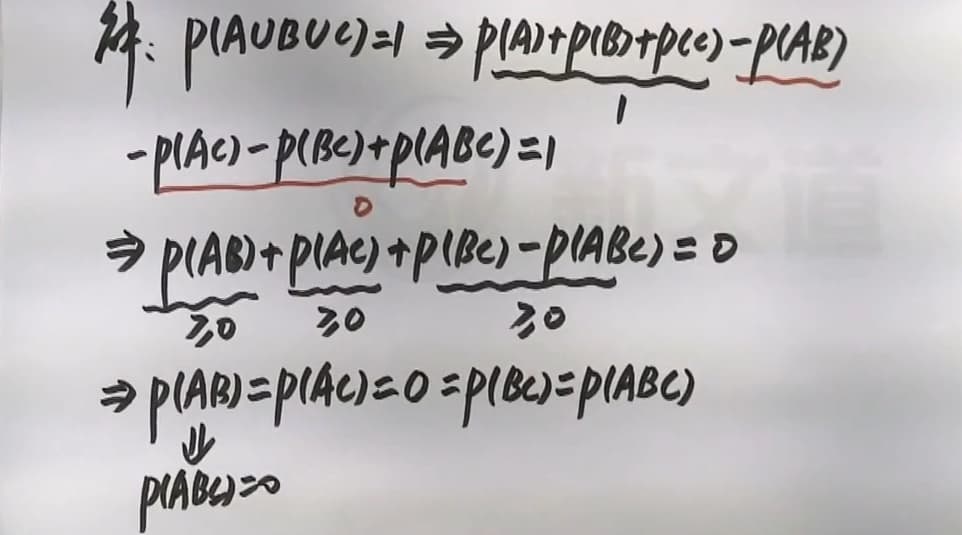 解: P(AUBUC)=1 ⇒ P(A)+P(B)+P(C)-P(AB)
1
-P(AC)-P(BC)+P(ABC)=1
0
⇒ P(AB)+P(AC)+P(BC)-P(ABC)=0
≥0 ≥0 ≥0
⇒ P(AB)=P(AC)=0=P(BC)=P(ABC)
⇓
P(ABC)=0
新文道